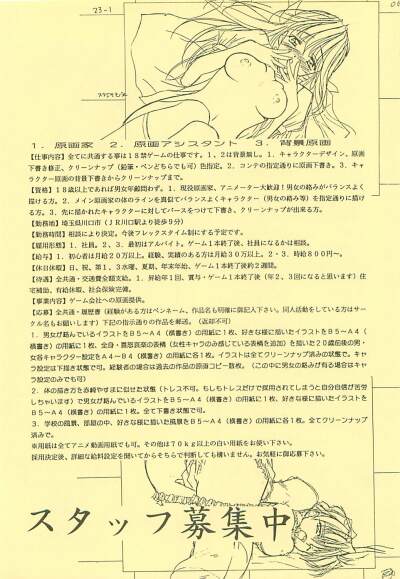 23-1
1．原画家　2．原画アシスタント　3．背景原画
【仕事内容】全てに共通する事は１８禁ゲームの仕事です。１、２は背景無し。１．キャラクターデザイン、原画
下書き修正、クリーンナップ（鉛筆・ペンどちらでも可）色指定。２．コンテの指定通りに原画下書き。３．キャ
ラクター原画の背景下書きからクリーンナップまで。
【資格】１８歳以上であれば男女年齢問わず。１．現役原画家、アニメーター大歓迎！男女の絡みがバランスよく
描ける方。２．メイン原画家の体のラインを真似てバランスよくキャラクター（男女の絡み等）を指定通りに描け
る方。３．先に描かれたキャラクターに対してパースをつけて下書き、クリーンナップが出来る方。
【勤務地】埼玉県川口市（ＪＲ川口駅より徒歩９分）
【勤務時間】相談により決定。今後フレックスタイム制にする予定です。
【雇用形態】１．社員。２、３．最初はアルバイト。ゲーム１本終了後、社員になるかは相談。
【給与】１．初心者は月給２０万以上。経験、実績のある方は月給３０万以上。２・３．時給８００円～。
【休日休暇】日、祝、第１、３水曜、夏期、年末年始、ゲーム１本終了後約２週間。
【待遇】全共通・交通費全額支給。１．昇給年１回、賞与・ゲーム１本終了後（年２、３回になると思います）住
宅補助、有給休暇、社会保険完備。
【事業内容】ゲーム会社への原画提供。
【応募】全共通・履歴書（経験がある方はペンネーム、作品名も明確に御記入下さい。同人活動をしている方はサー
クル名もお願いします）下記の指示通りの作品を郵送。（返却不可）
１．男女が絡んでいるイラストをＢ５～Ａ４（横書き）の用紙に１枚、好きな様に描いたイラストをＢ５～Ａ４（
横書き）の用紙に１枚、全身・喜怒哀楽の表情（女性キャラのみ感じている表情を追加）を描いた２０歳前後の男・
女各キャラクター設定をＡ４～Ｂ４（横書き）の用紙に各１枚。イラストは全てクリーンナップ済みの状態で。キャ
ラ設定は下描き状態で可。経験者の場合は過去の作品の原画コピー数枚。（この中に男女の絡みが有る場合はキャ
ラ設定のみでも可）
２．体の描き方を赤﨑やすまに似せた状態（トレス不可。もしもトレスだけで採用されてしまうと自分自信が苦労
しちゃいます）で男女が絡んでいるイラストをＢ５～Ａ４（横書き）の用紙に１枚、好きな様に描いたイラスト
をＢ５～Ａ４（横書き）の用紙に１枚。全て下書き状態で可。
３．学校の風景、部屋の中、好きな様に描いた風景をＢ５～Ａ４（横書き）の用紙に各１枚。全てクリーンナップ
済みで。
※用紙は全てアニメ動画用紙でも可。その他は７０ｋｇ以上の白い用紙をお使い下さい。
採用決定後、詳細な給料設定を聞いてからそちらで判断しても構いません。お気軽に御応募下さい。
スタッフ募集中